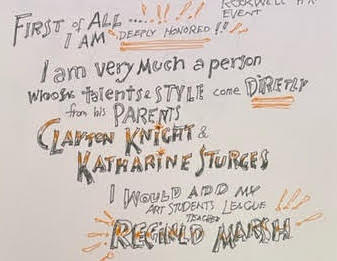 ROCKWELL
EVENT
FIRST of ALL ....!!!!
I AM DEEPLY HONORED!!
I am very Much a person
whose talents & STYLE come DIRETLY
from his PARENTS
CLAYTON KNIGHT &
KATHARINE STURGES
I WOULD ADD MY
ART STUDENTS LEAGUE !!!
TEACHER
REGINLD MARSH